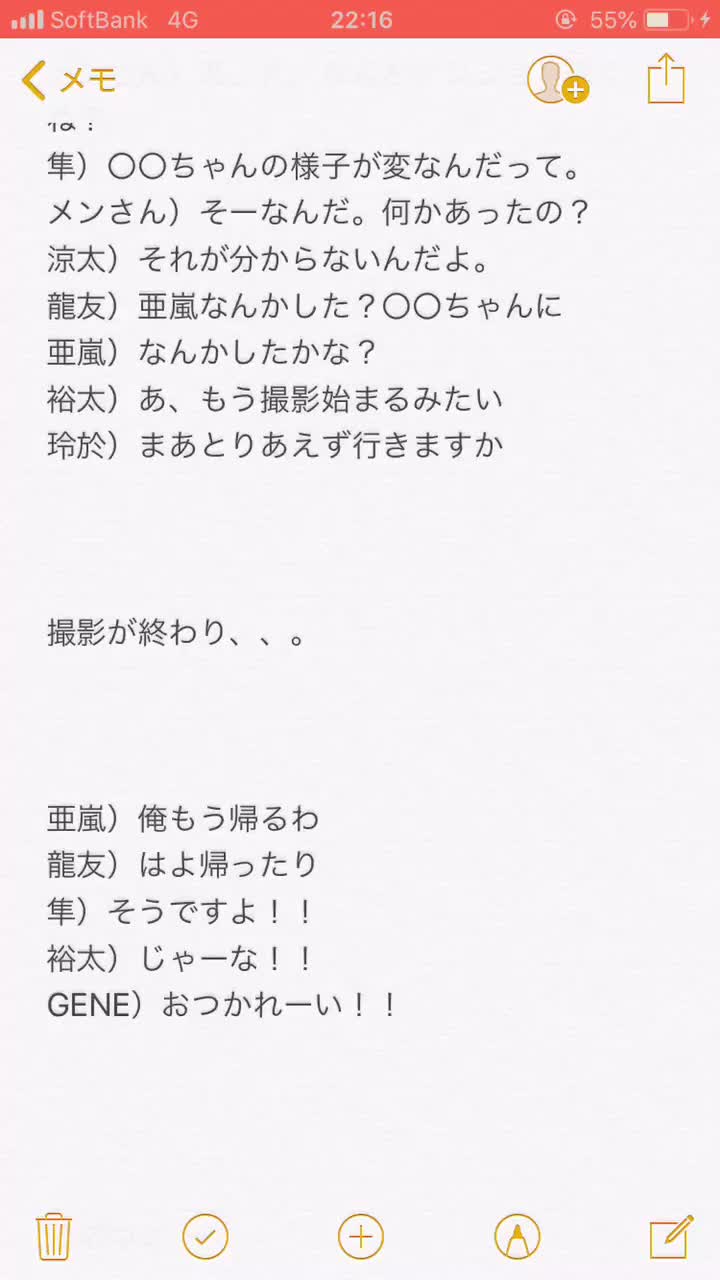 SoftBank 4G 22:16 55%
メモ
隼）〇〇ちゃんの様子が変なんだって。
メンさん）そーなんだ。何かあったの？
涼太）それが分からないんだよ。
龍友）亜嵐なんかした？〇〇ちゃんに
亜嵐）なんかしたかな？
裕太）あ、もう撮影始まるみたい
玲於）まあとりあえず行きますか
撮影が終わり、、。
亜嵐）俺もう帰るわ
龍友）はよ帰ったり
隼）そうですよ！！
裕太）じゃーな！！
GENE）おつかれーい！！